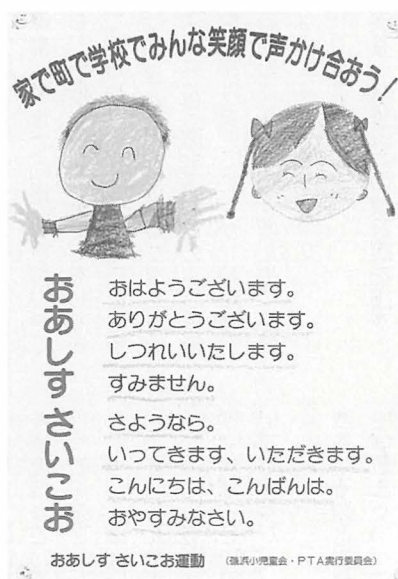 家で町で学校でみんな笑顔で声かけ合おう！
おあしす さいこお
おはようございます。
ありがとうございます。
しつれいいたします。
すみません。
さようなら。
いってきます、いただきます。
こんにちは、こんばんは。
おやすみなさい。
おあしす さいこお運動 （磯浜小児童会・ＰＴＡ実行委員会）